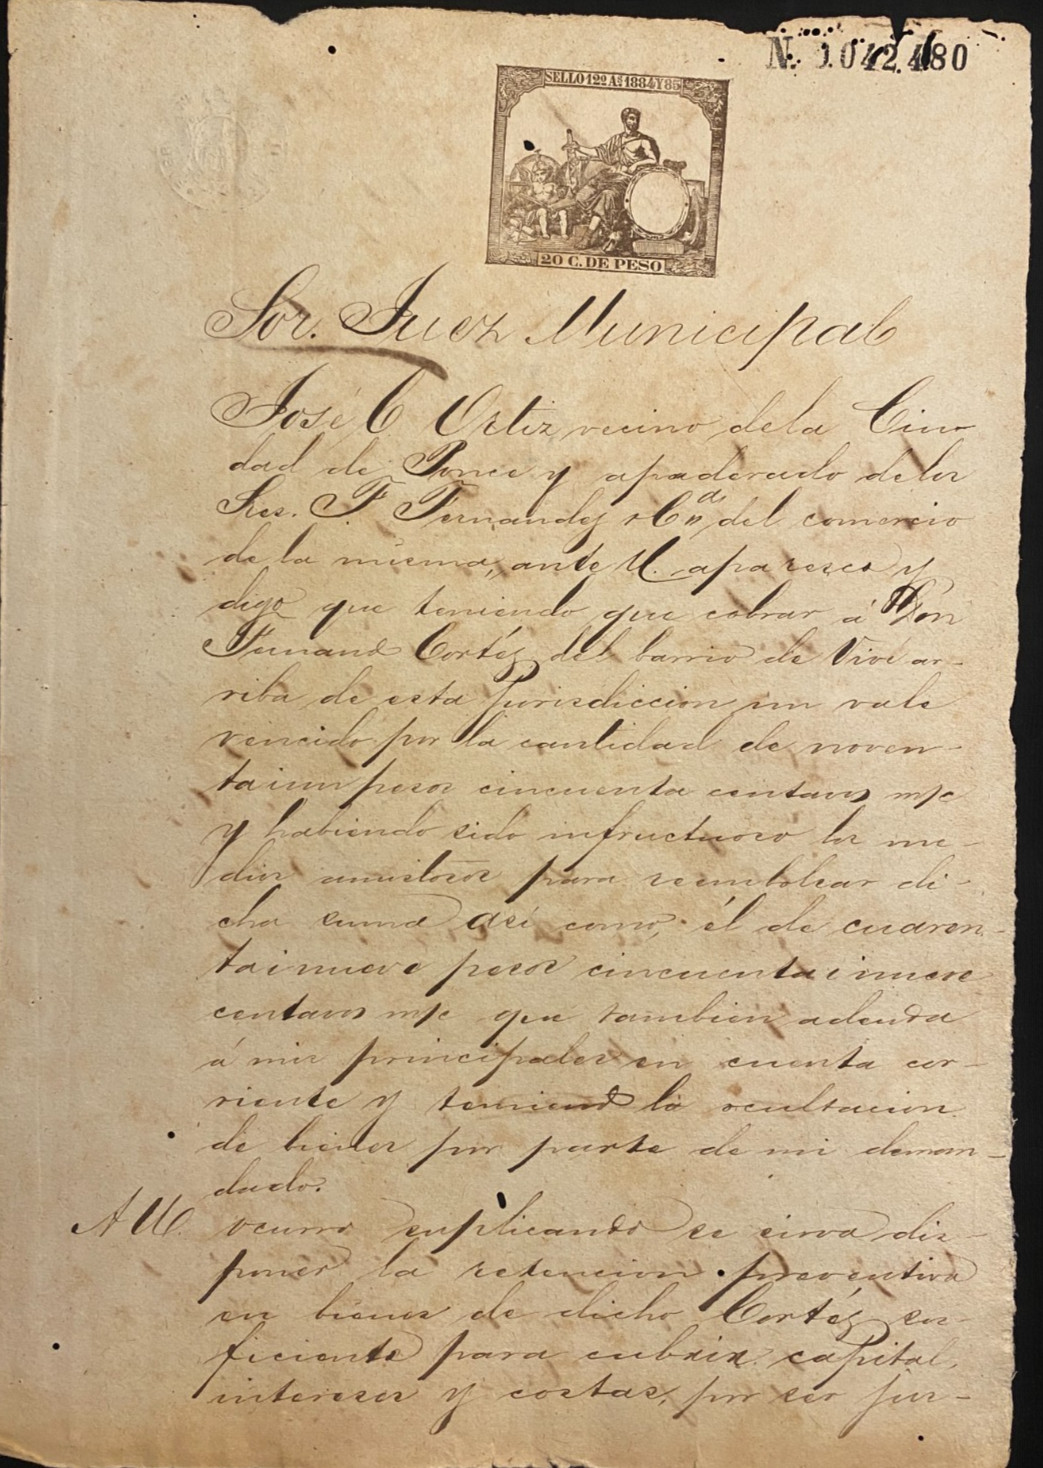 N. 0.042,480
SELLO 12º Aˢ 1884 Y 85
20 C. DE PESO
Sor. Juez Municipal
José C Ortiz vecino de la Ciu
dad de Ponce y apoderado de los
Sres. F. Fernandez y Cª del comercio
de la misma, ante U. aparesco y
digo que teniendo que cobrar á Don
Fernand Cortés del barrio de Vive ar-
riba de esta Jurisdiccion un vale
vencido por la cantidad de noven-
taiun pesos cincuenta centavos m/c
y habiendo sido infructuoso los me-
dios amistosos para reembolsar di-
cha suma así como, él de cuaren-
tainueve pesos cincuentainueve
centavos m/c que tambien adeuda
á mis principales en cuenta cor-
riente y temiendo la ocultacion
de bienes por parte de mi deman-
dado.
A U. ocurro suplicando se sirva dis-
poner la retencion preventiva
en bienes de dicho Cortés su-
ficiente para cubrir capital,
intereses y costas, por ser jus-